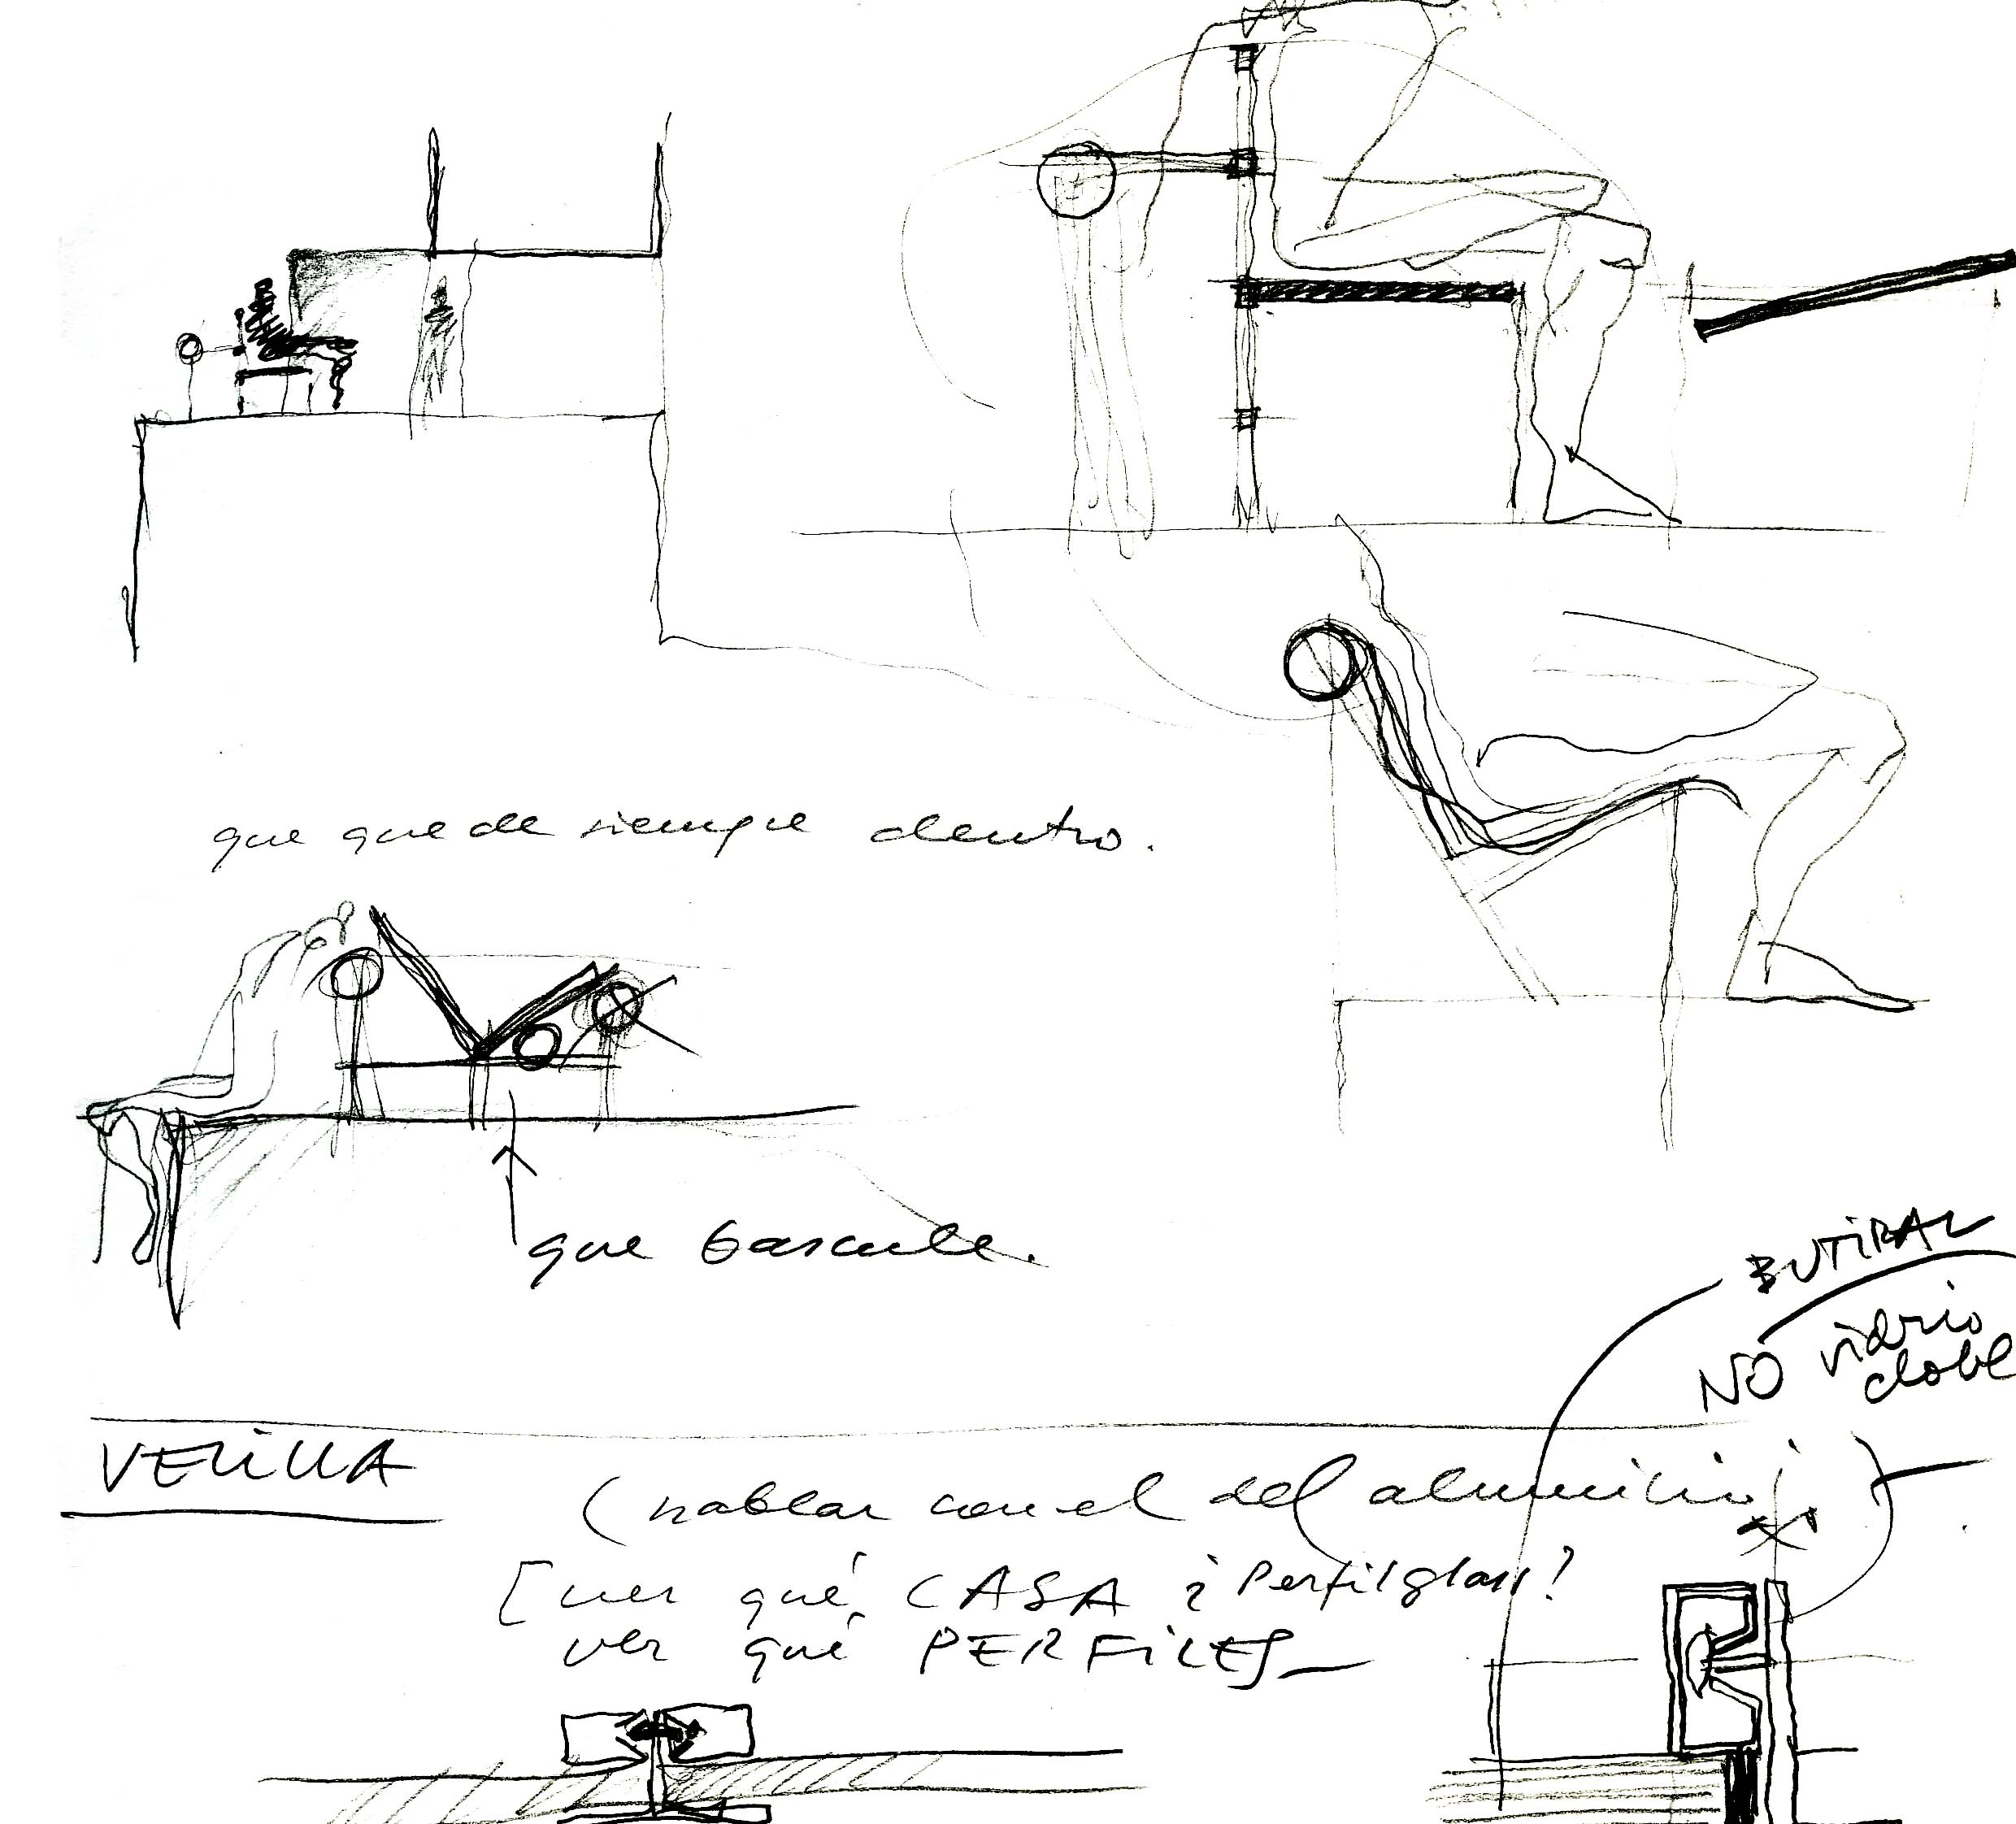 que quede siempre dentro.
que bascule.
BUTIRAL
NO vidrio
doble
VELILLA
(hablar con el del aluminio)
[ver qué CASA ¿Perfilglass?
ver qué PERFILES